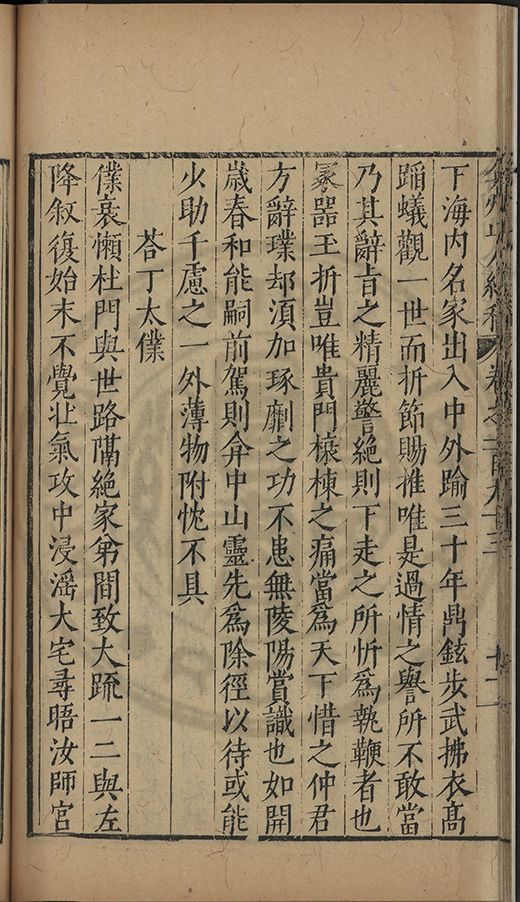 弇州山人續稿 卷之一百九十三 十二
下海內名家出入中外踰三十年鼎鉉步武拂衣高
蹈蟻觀一世而折節賜推唯是過情之譽所不敢當
乃其辭旨之精麗警絕則下走之所忻爲執鞭者也
彞器玉折豈唯貴門榱棟之痛當爲天下惜之仲君
方辭璞却須加琢劘之功不患無陵陽賞識也如開
歲春和能嗣前駕則弇中山靈先爲除徑以待或能
少助千慮之一外薄物附忱不具
荅丁太僕
僕衰懶杜門與世路隔絕家弟間致大疏一二與左
降敘復始末不覺壯氣攻中浸滛大宅尋晤汝師宮